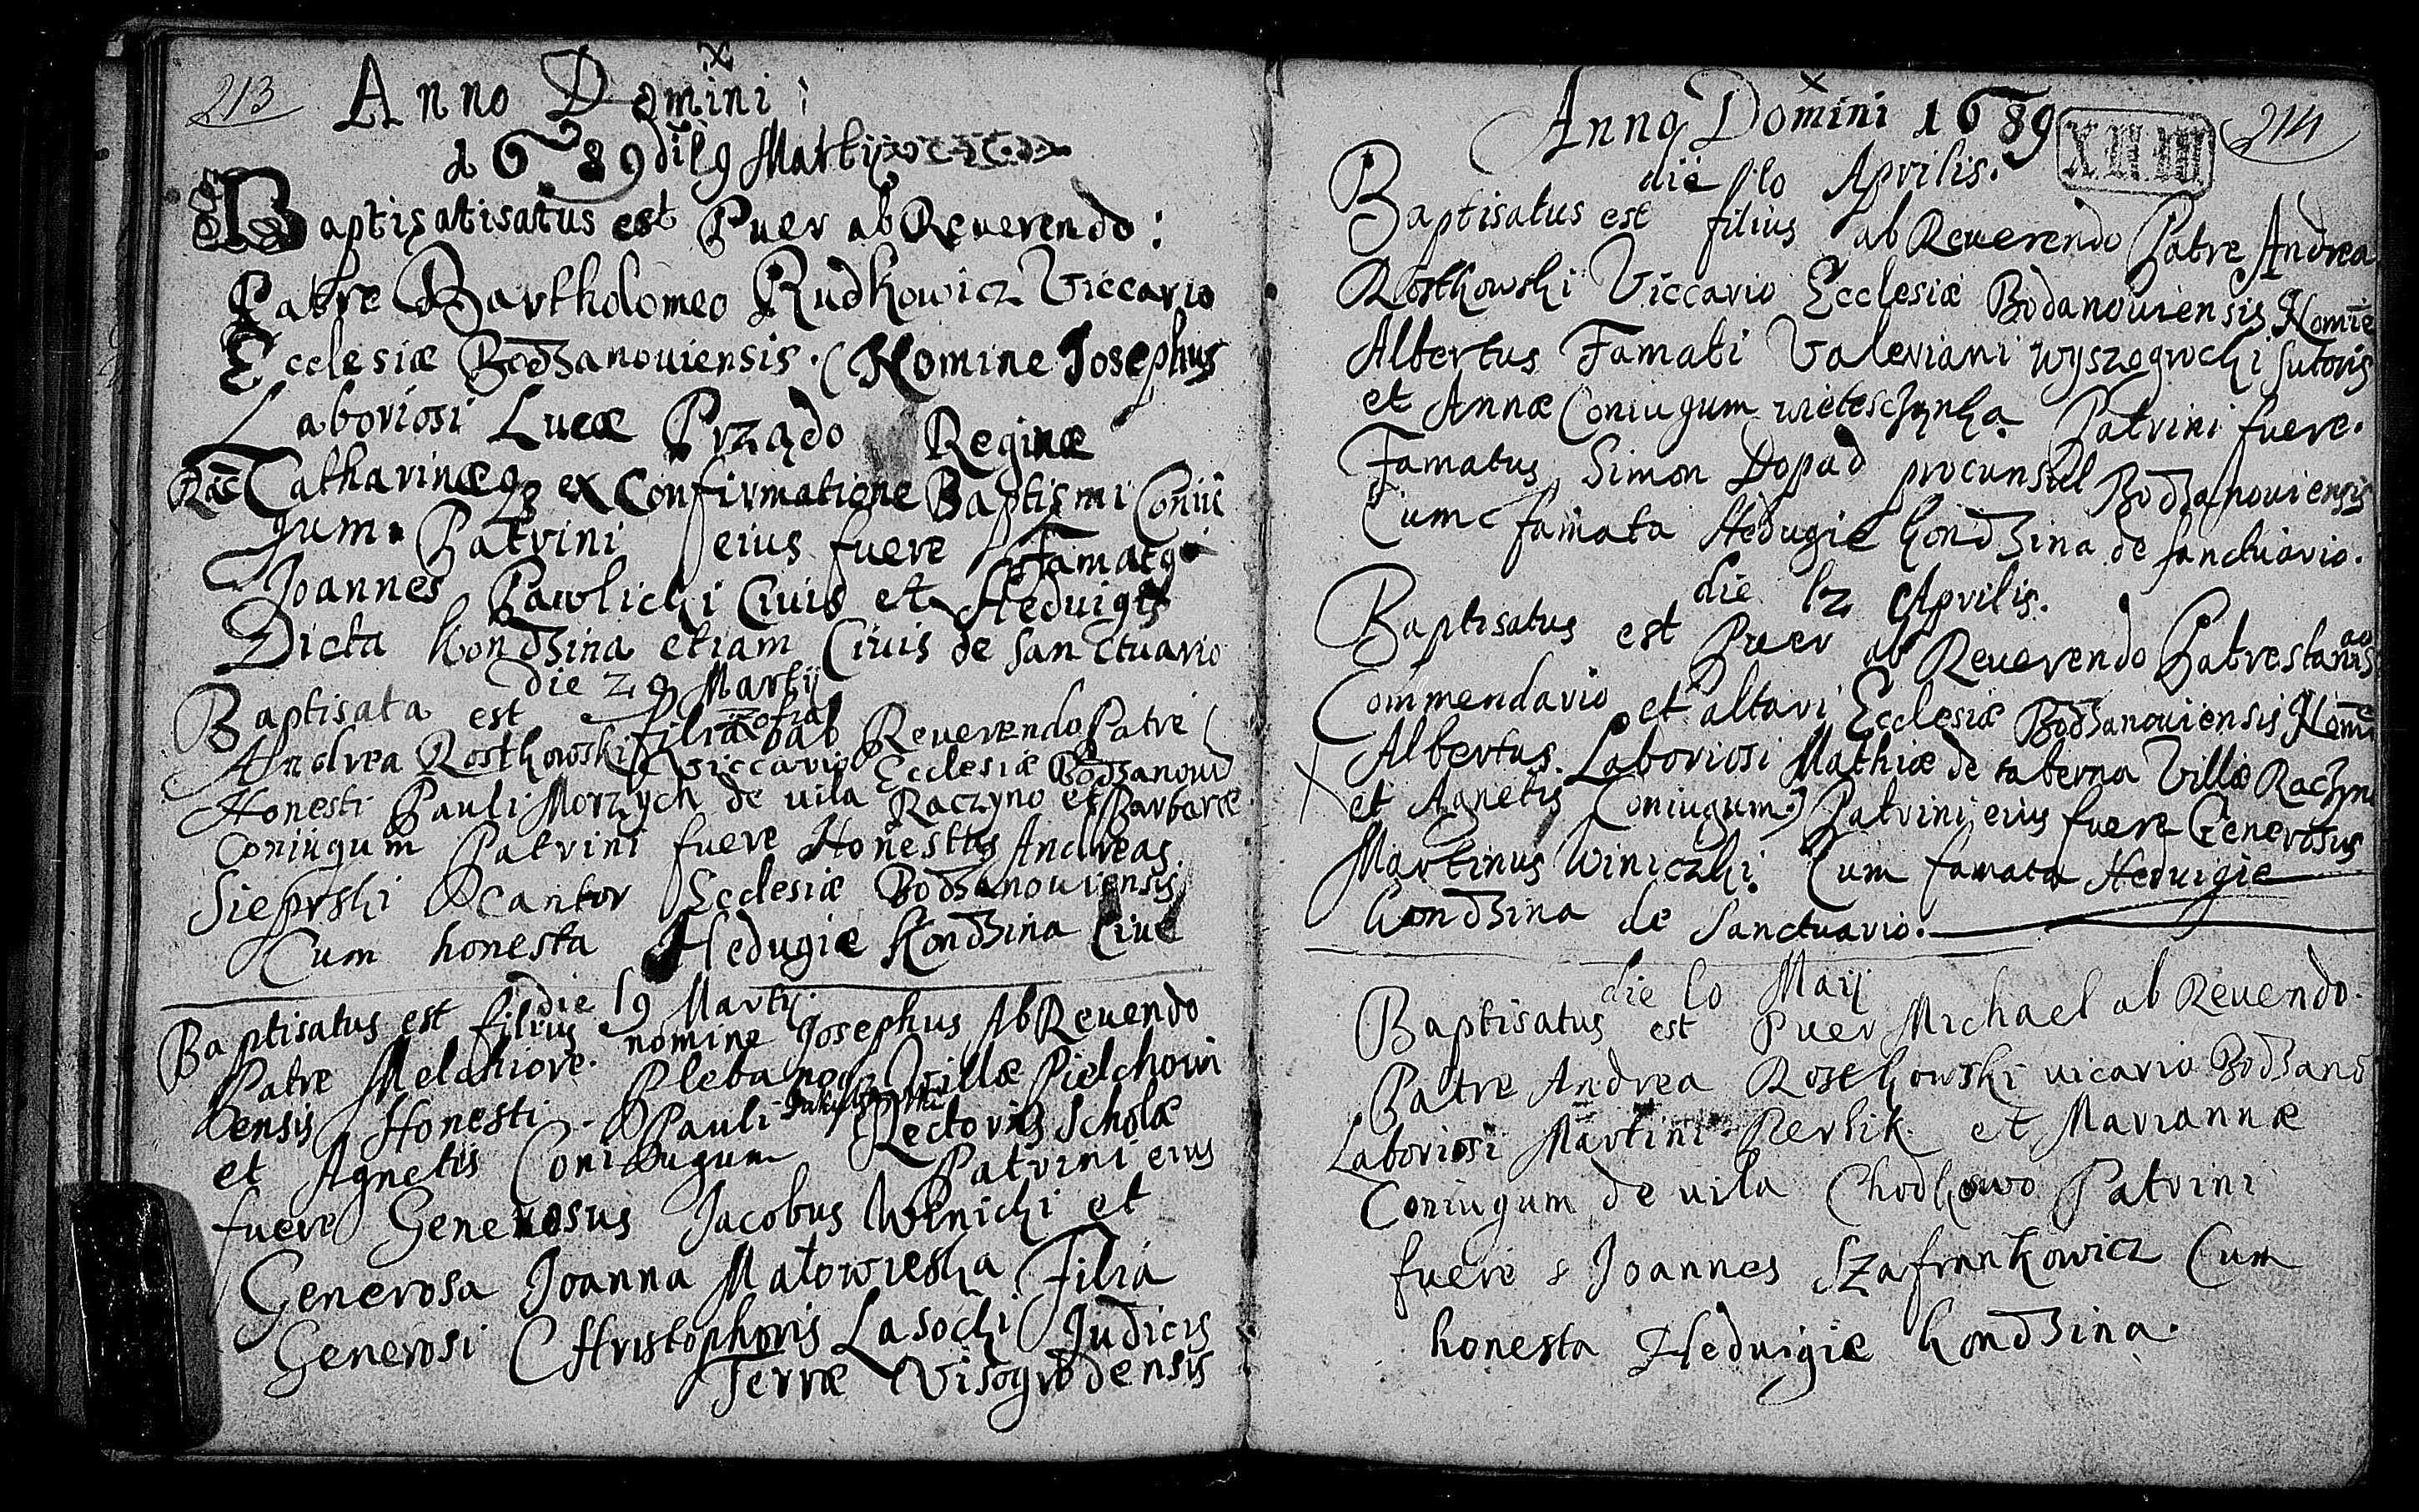 213
Anno Domini
1689 die 19 Martij
Baptisatisatus est Puer ab Reuerendo:
Patre Bartholomeo Rudkowicz Viccario
Ecclesiæ Bodzanouiensis. Nomine Josephus
Laboriosi Lucæ Prządo Reginæ
Catharinæq; ex Confirmatione Baptismi Coniu
gum Patrini eius fuere Famatq
Joannes Pawlicki Ciuis et Heduigis
Dicta Kondzina etiam Ciuis de Sanctuario
die 29 Martij
Baptisata est filia Zofia ab Reuerendo Patre
Andrea Rostkowski Viccario Ecclesiæ Bodzanoui
Honesti Pauli Morzych de uila Raczyno et Barbaræ
Coniugum Patrini fuere Honestus Andreas
Sieprski Cantor Ecclesiæ Bodzanouiensis
Cum honesta Hedugiæ Kondzina Ciue
die 19 Martij
Baptisatus est filius nomine Josephus Ab Reuendo
Patre Melchiore Plebano Villæ Pielchoui
ensis Honesti Pauli Rectoris Scholæ
et Agnetis Coniugum Patrini eius
fuere Generosus Jacobus Winicki et
Generosa Joanna Matowieska Filia
Generosi Christophoris Lasocki Judicis
Terræ Visogrodensis
Anno Domini 1689
214
die 10 Aprilis.
Baptisatus est filius ab Reuerendo Patre Andrea
Rostkowski Viccario Ecclesiæ Bodanouiensis Nomie
Albertus Famati Valeriani wyszogrocki sutoris
et Annæ Coniugum Patrini fuere.
Famatus Simon Dopad procunsul Bodzanouiensis
Cum famata Hedugie Kondzina de sanctuario.
die 12 Aprilis.
Baptisatus est Puer ab Reuerendo Patre stanis
Commendario et altari Ecclesiæ Bodzanouiensis Nomie
Albertus. Laboriosi Mathiæ de taberna Villæ Raczyn
et Agnetis Coniugum Patrini eius fuere Generosus
Martinus Winiczki Cum famata Heduigie
Kondzina de Sanctuario.
die 10 Maij
Baptisatus est Puer Michael ab Reuendo.
Patre Andrea Rostkowski uicario Bodzano
Laboriosi Martini Perlik et Mariannæ
Coniugum de uila Chodkowo Patrini
fuere Joannes Szafrankowicz Cum
honesta Heduigiæ Kondzina.